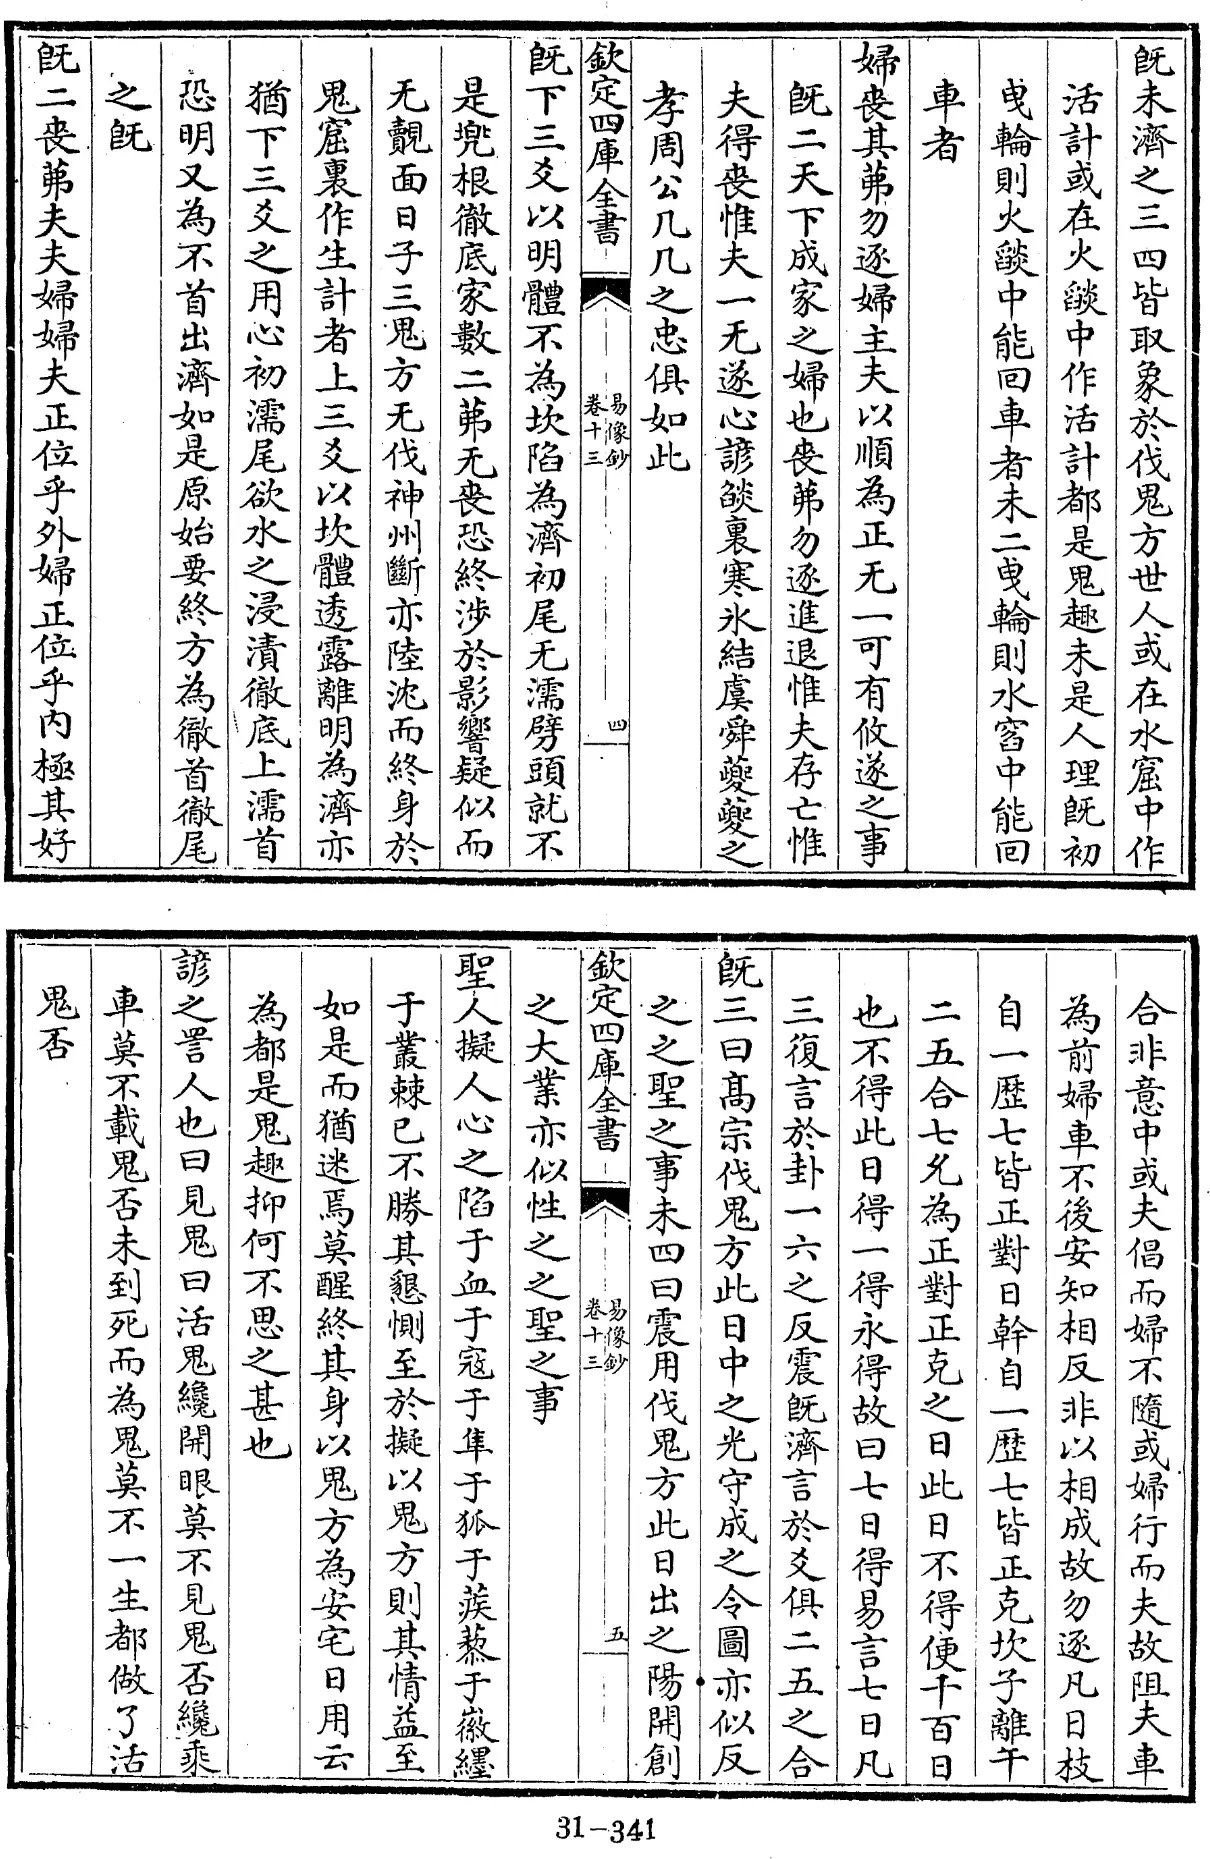 既未濟之三四皆取象於伐鬼方世人或在水窟中作
活計或在火燄中作活計都是鬼趣未是人理旣初
曵輪則火燄中能回車者未二曵輪則水窞中能回
車者
婦丧其茀勿逐婦主夫以順為正无一可有攸遂之事
旣二天下成家之婦也丧茀勿逐進退惟夫存亡惟
夫得丧惟夫一无遂心諺燄裏寒氷結虞舜夔夔之
孝周公几几之忠俱如此
欽定四庫全書
易像鈔
卷十三
四
旣下三爻以明體不為坎陷為濟初尾无濡劈頭就不
是兠根徹底家數二茀无丧恐終涉於影響疑似而
无覿面日子三鬼方无伐神州斷亦陸沈而終身於
鬼窟裏作生計者上三爻以坎體透露離明為濟亦
猶下三爻之用心初濡尾欲水之浸漬徹底上濡首
恐明又為不首出濟如是原始要終方為徹首徹尾
之旣
旣二丧茀夫夫婦婦夫正位乎外婦正位乎内極其好
合非意中或夫倡而婦不隨或婦行而夫故阻夫車
為前婦車不後安知相反非以相成故勿逐凡日枝
自一歴七皆正對日幹自一歴七皆正克坎子離午
二五合七允為正對正克之日此日不得便千百日
也不得此日得一得永得故曰七日得易言七日凡
三復言於卦一六之反震旣濟言於爻俱二五之合
旣三曰髙宗伐鬼方此日中之光守成之令圖亦似反
之之聖之事未四曰震用伐鬼方此日出之陽開創
欽定四庫全書
易像鈔
卷十三
五
之大業亦似性之之聖之事
聖人擬人心之陷于血于寇于隼于狐于蒺藜于徽纆
于叢棘已不勝其懇惻至於擬以鬼方則其情益至
如是而猶迷焉莫醒終其身以鬼方為安宅日用云
為都是鬼趣抑何不思之甚也
諺之詈人也曰見鬼曰活鬼纔開眼莫不見鬼否纔乘
車莫不載鬼否未到死而為鬼莫不一生都做了活
鬼否
31-341